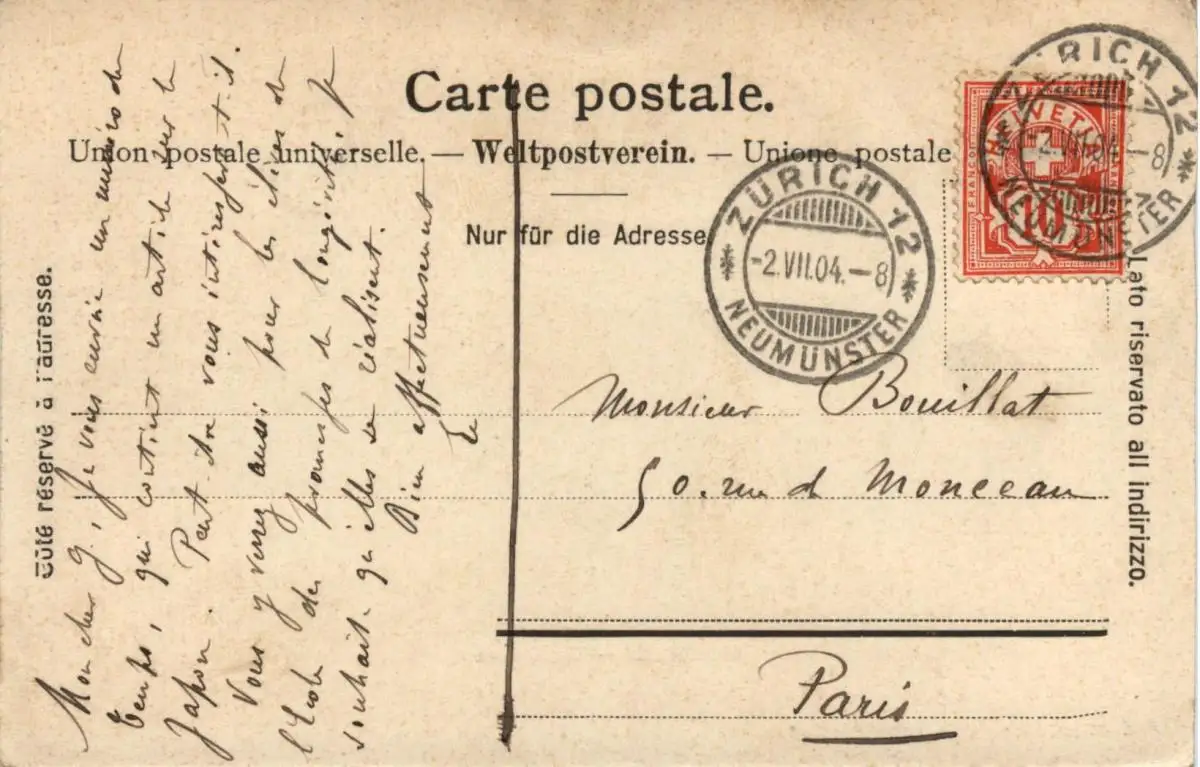 Carte postale.
Union postale universelle. — Weltpostverein. — Unione postale
Nur für die Adresse
Côté réservé à l'adresse.
Lato riservato all indirizzo.
ZÜRICH 12
-2.VII.04.-8
NEUMÜNSTER
ZÜRICH 12
-2.VII.04.-8
NEUMÜNSTER
HELVETIA
FRANCO
10
Monsieur Bouillat
50. rue d Monceau
Paris
Mon cher G, je vous envoie un numéro du
Temps, qui contient un article sur le
Japon. Peut être vous intéressera-t-il.
Vous y verrez aussi pour les élèves de
l'Ecole des promesses de longévité. Je
souhaite qu'elles se réalisent.
Bien affectueusement